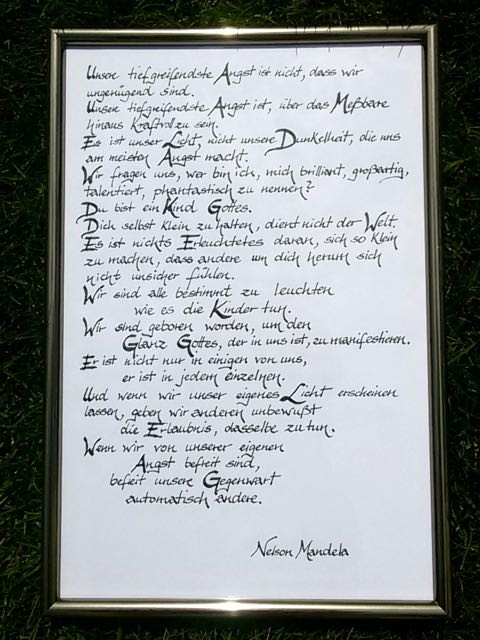 Unsere tiefgreifendste Angst ist nicht, dass wir
ungenügend sind.
Unsere tiefgreifendste Angst ist, über das Meßbare
hinaus Kraftvoll zu sein.
Es ist unser Licht, nicht unsere Dunkelheit, die uns
am meisten Angst macht.
Wir fragen uns, wer bin ich, mich brilliant, großartig,
talentiert, phantastisch zu nennen?
Du bist ein Kind Gottes.
Dich selbst klein zu halten, dient nicht der Welt.
Es ist nichts Erleuchtetes daran, sich so klein
zu machen, dass andere um dich herum sich
nicht unsicher fühlen.
Wir sind alle bestimmt zu leuchten
wie es die Kinder tun.
Wir sind geboren worden, um den
Glanz Gottes, der in uns ist, zu manifestieren.
Er ist nicht nur in einigen von uns,
er ist in jedem einzelnen.
Und wenn wir unser eigenes Licht erscheinen
lassen, geben wir anderen unbewußt
die Erlaubnis, dasselbe zu tun.
Wenn wir von unserer eigenen
Angst befreit sind,
befreit unsere Gegenwart
automatisch andere.
Nelson Mandela